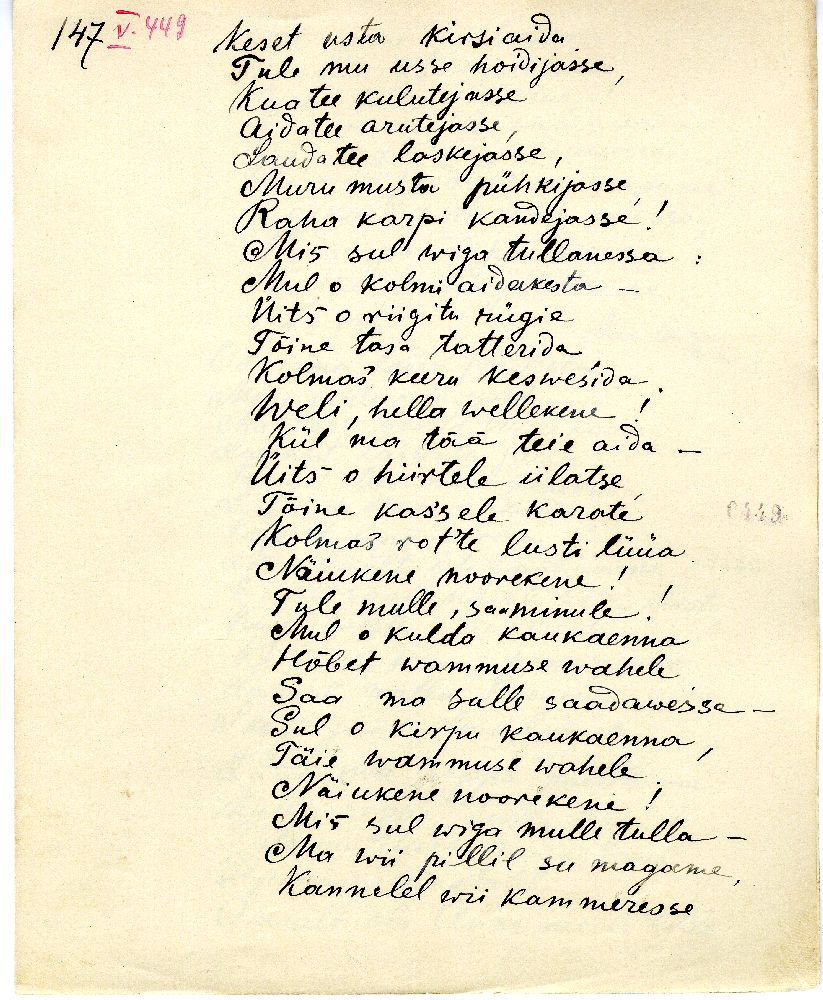 147 V. 449
Keset usta kirsiaida
Tule mu usse hoidijasse,
Kua tee kulutejasse
Aidatee arutejasse,
Laudatee laskejasse,
Muru musta pühkijasse,
Raha karpi kandejasse!
Mis sul wiga tullanessa:
Mul o kolmi aidakesta –
Üits o riigitu rügie
Tõine tasa tatterida
Kolmas keeru keswesida.
Weli, hella wellekene!
Kül ma tää teie aida –
Üits o hiirtele iilatse,
Tõine kassele karate
Kolmas rot'te lusti lüüa
Näiukene noorekene!
Tule mulle, saa minule!
Mul o kulda kaukaenna
Hõbet wammuse wahele
Saa ma sulle saadawesse –
Sul o kirpu kaukaenna,
Täie wammuse wahele.
Näiukene noorekene!
Mis sul wiga mulle tulla –
Ma wii pillil su magame,
Kannelel wii kammeresse